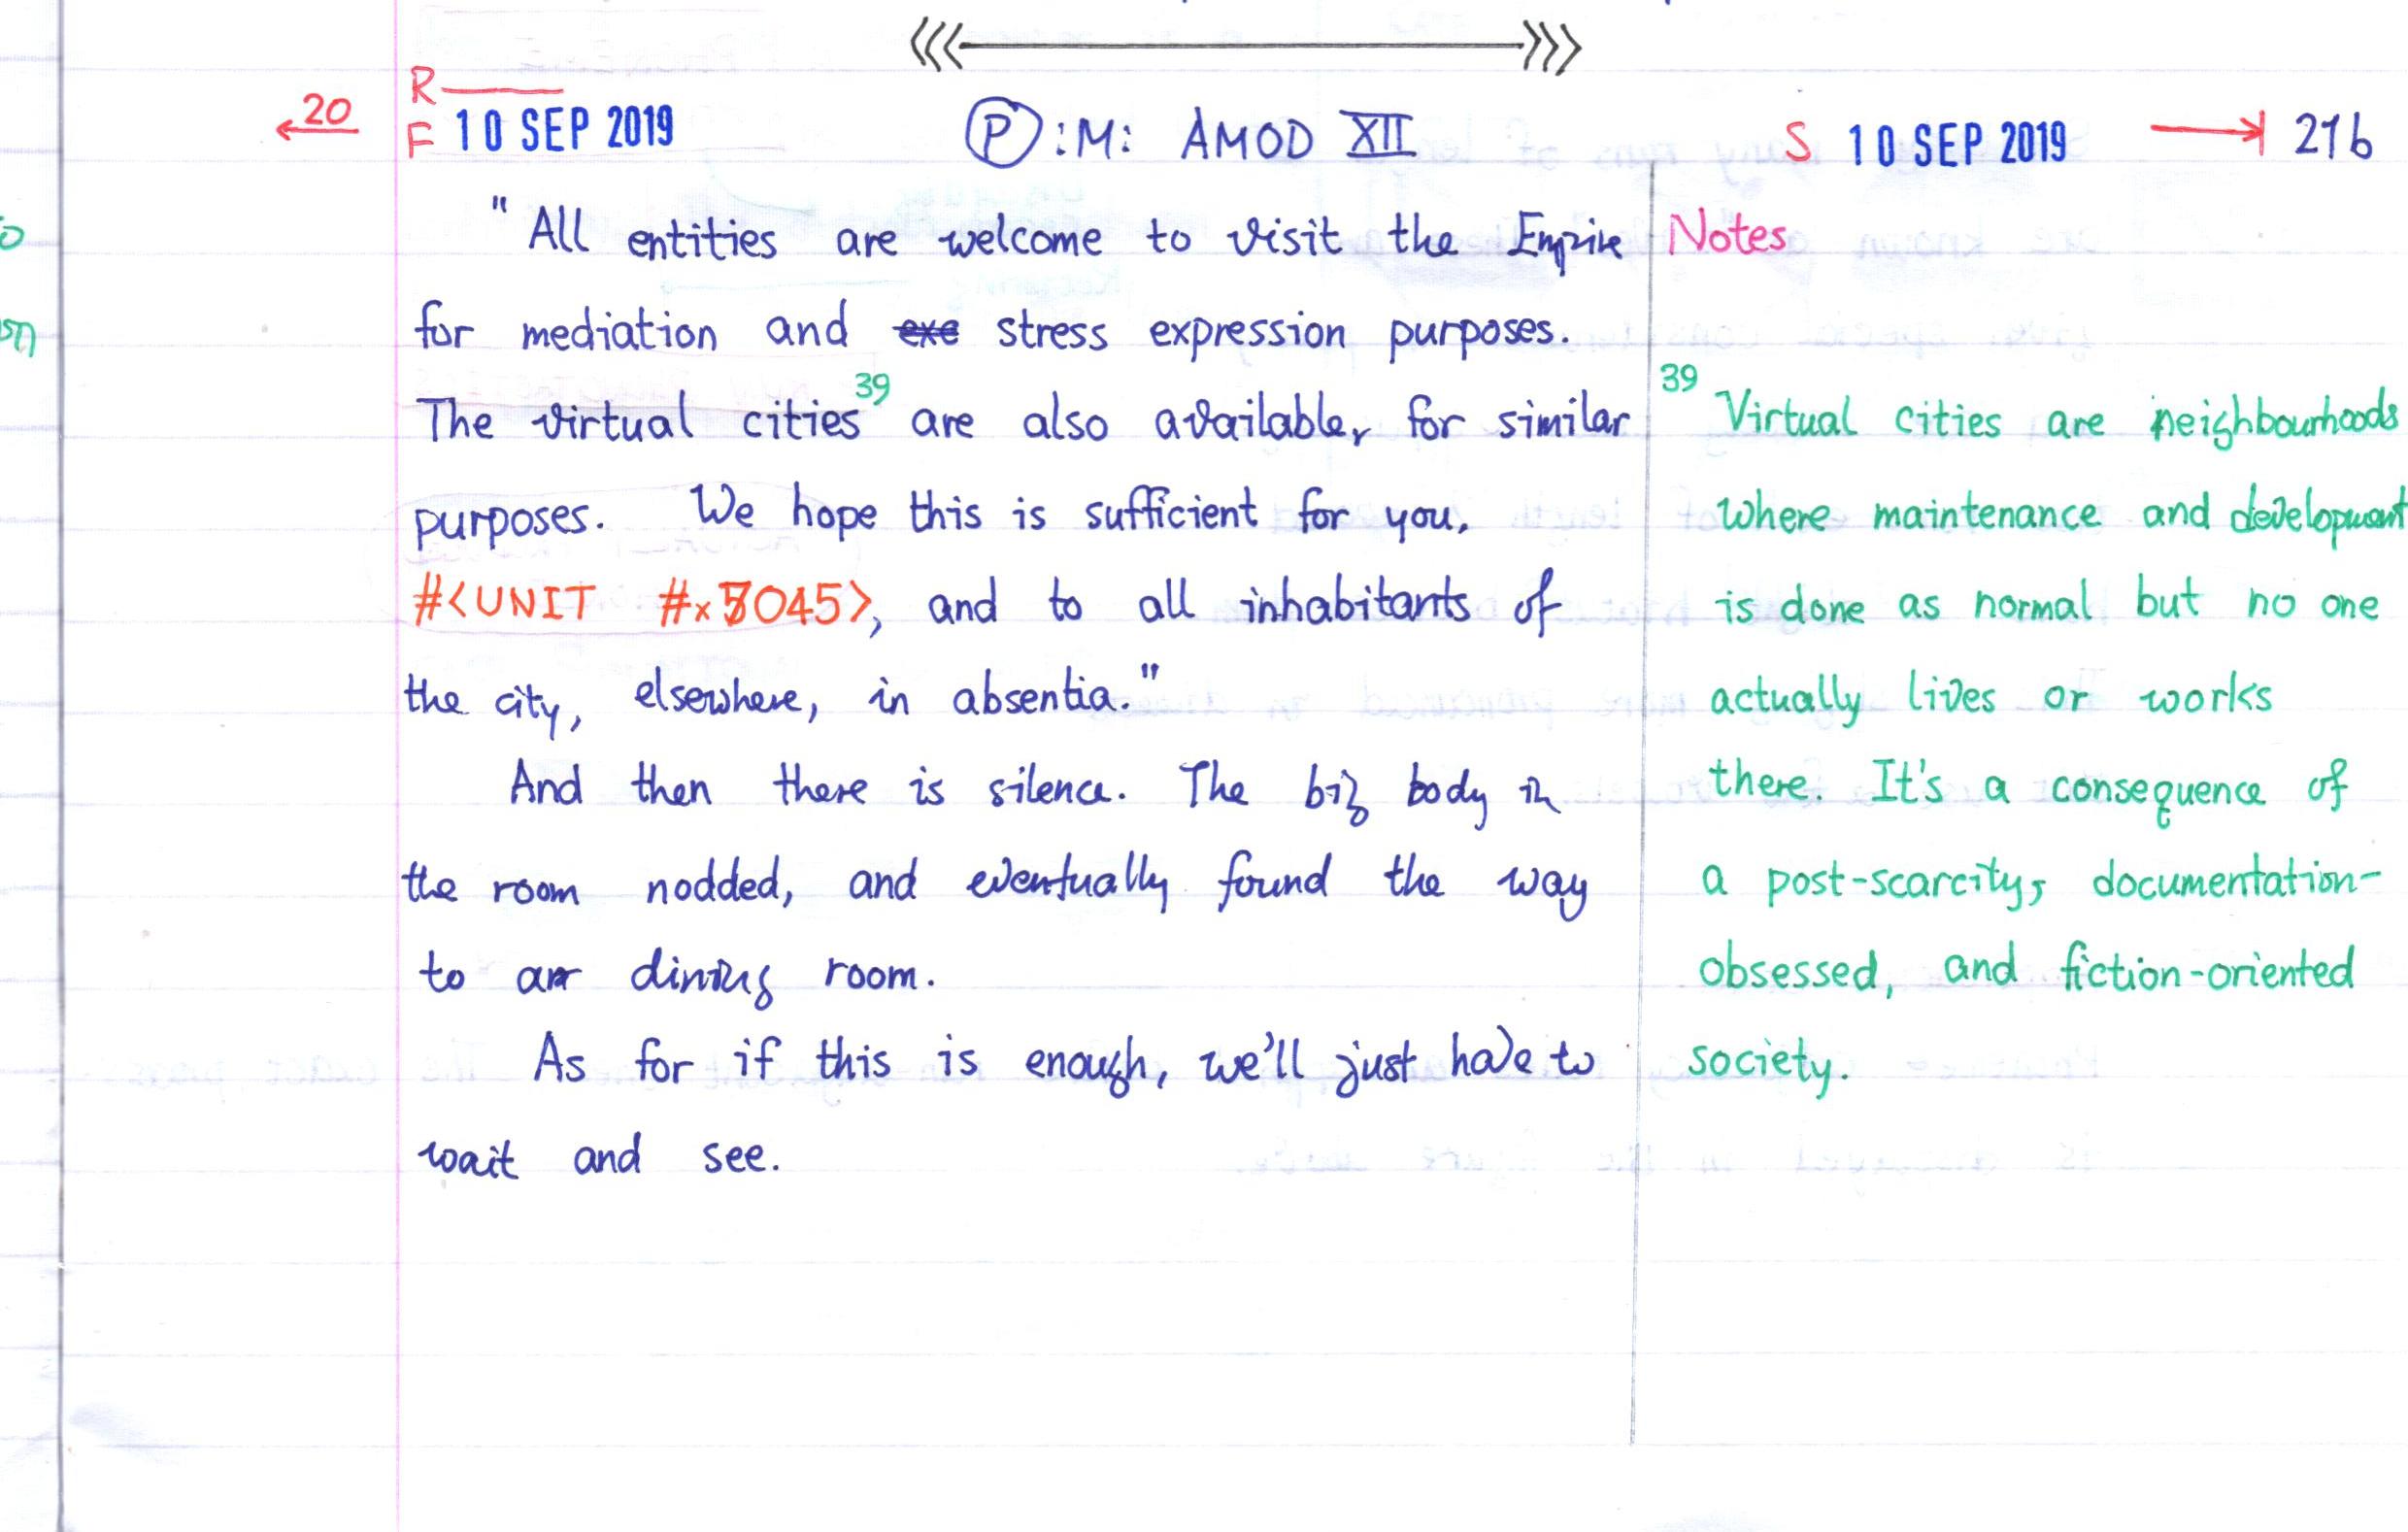 R
←20 F 10 SEP 2019 Ⓟ:M: AMOD XII S 10 SEP 2019 →| 21b
"All entities are welcome to visit the Empire
for mediation and exe stress expression purposes.
The virtual cities³⁹ are also available, for similar
purposes. We hope this is sufficient for you,
#<UNIT #x5045>, and to all inhabitants of
the city, elsewhere, in absentia."
And then there is silence. The big body in
the room nodded, and eventually found the way
to a dining room.
As for if this is enough, we'll just have to
wait and see.
Notes
³⁹ Virtual cities are neighbourhoods
where maintenance and development
is done as normal but no one
actually lives or works
there. It's a consequence of
a post-scarcity, documentation-
obsessed, and fiction-oriented
society.